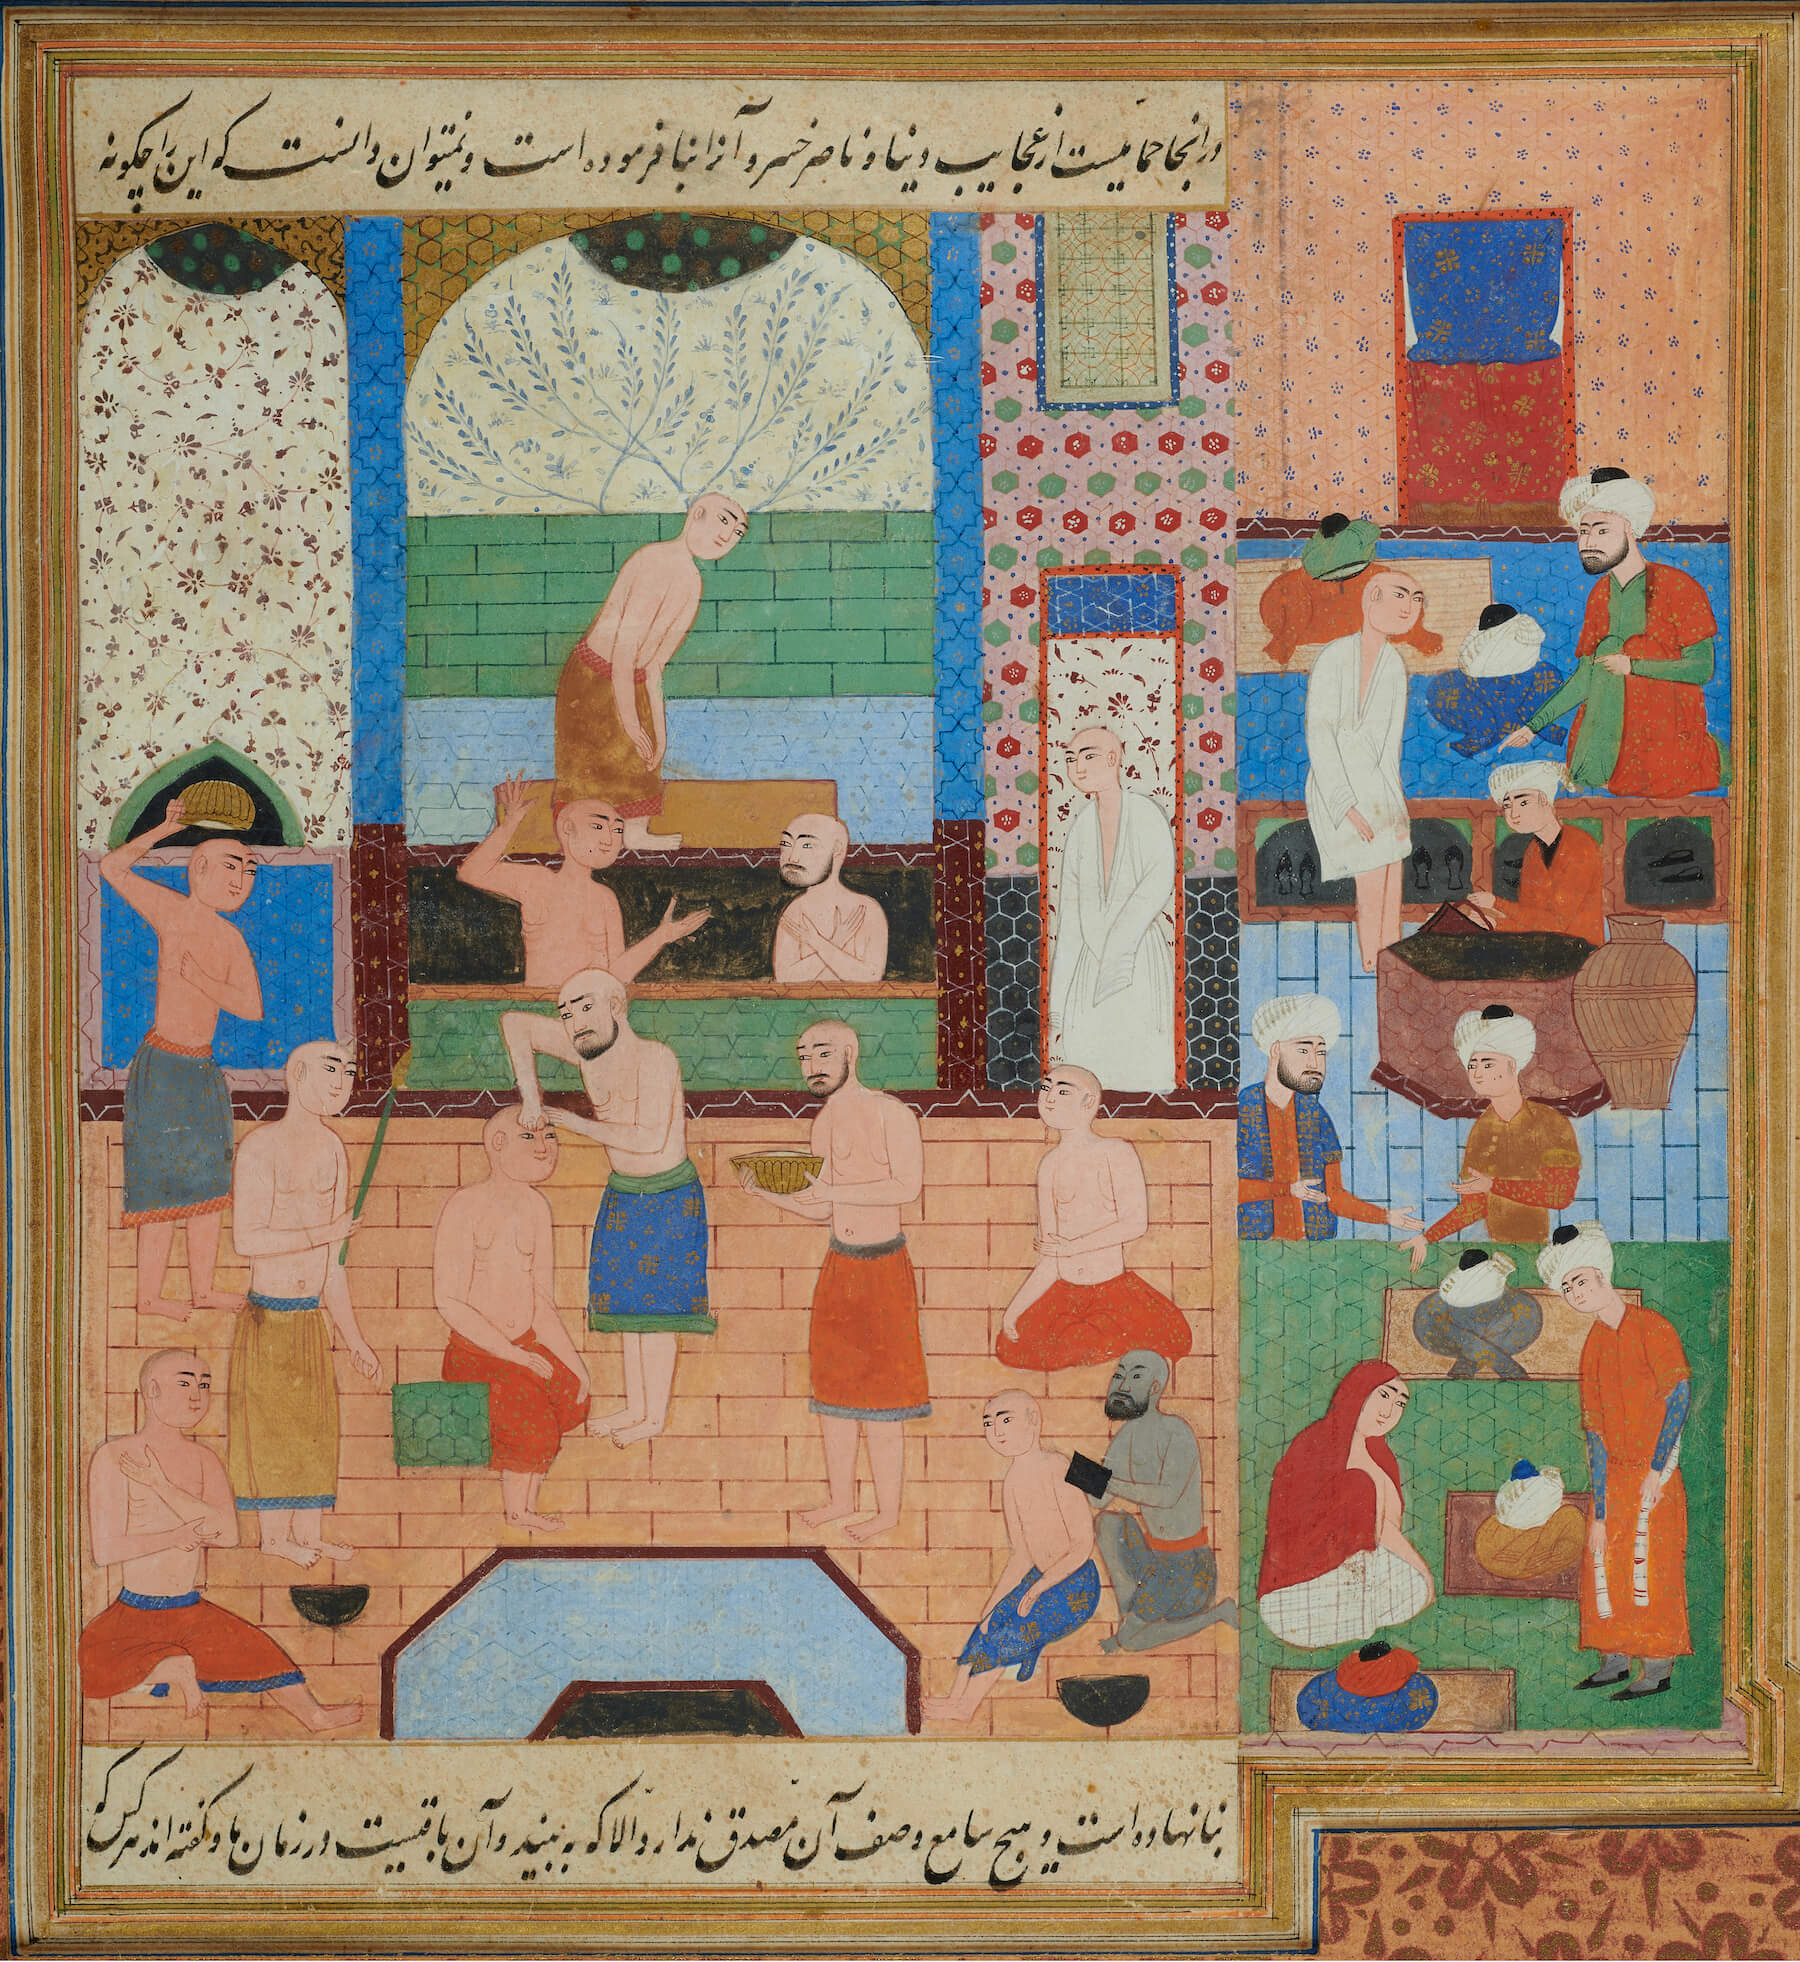 در انجا حمامیست از عجایب دنیا و ناصر خسرو آنرا بنا فرموده است و نمیتوان دانست که این را چگونه
بنا نهاده است و هیچ سامع وصف آن مصدق ندارد الا که به بیند و آن باقیست در زمان ما و گفته اند هر کس که